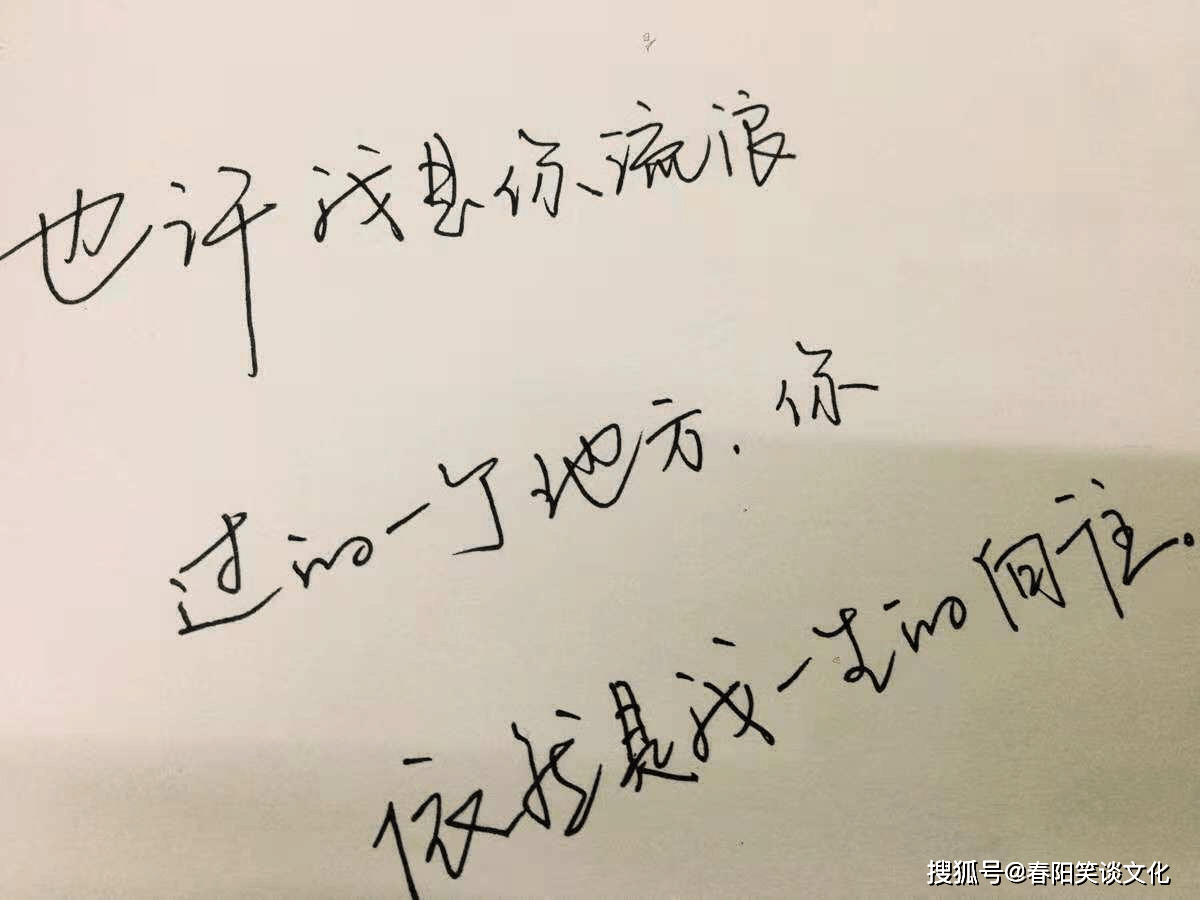 也许我是你流浪
过的一个地方,你
依然是我一生的向往。
搜狐号@春阳笑谈文化